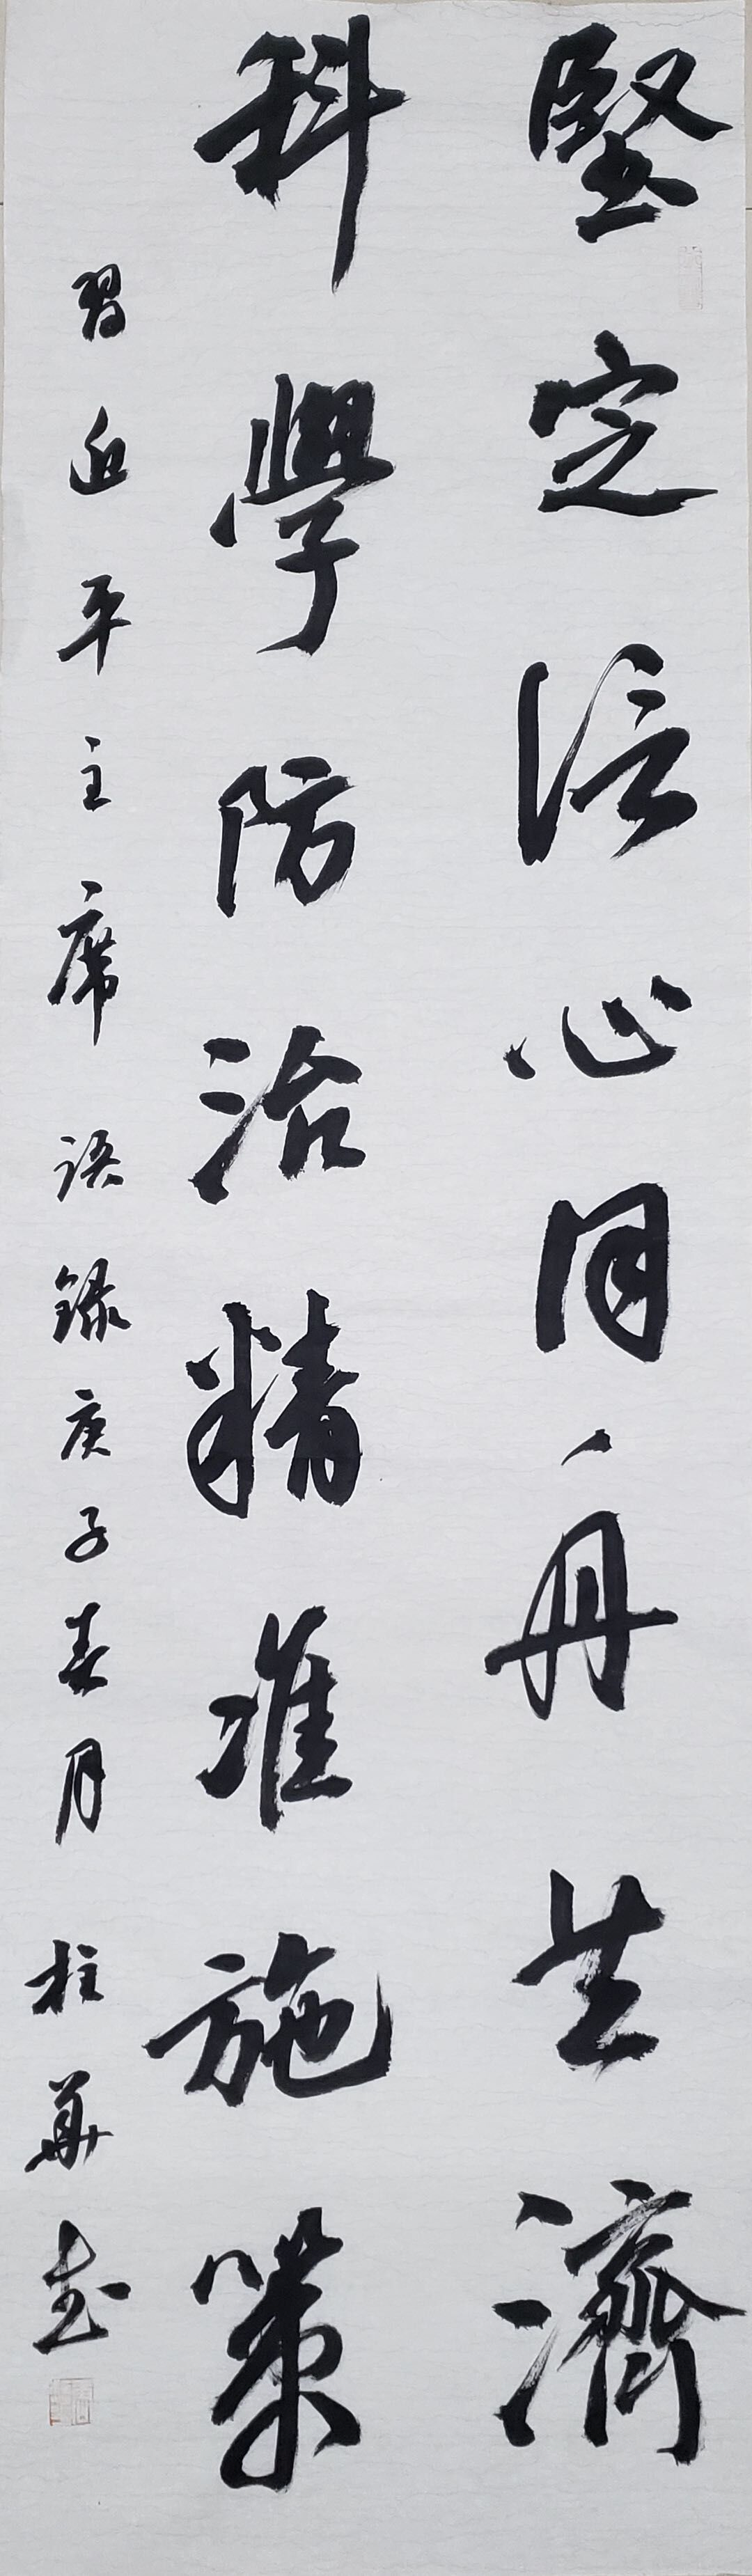 堅定信心同舟共濟
科學防治精准施策
習近平主席語録庚子春月柱華書